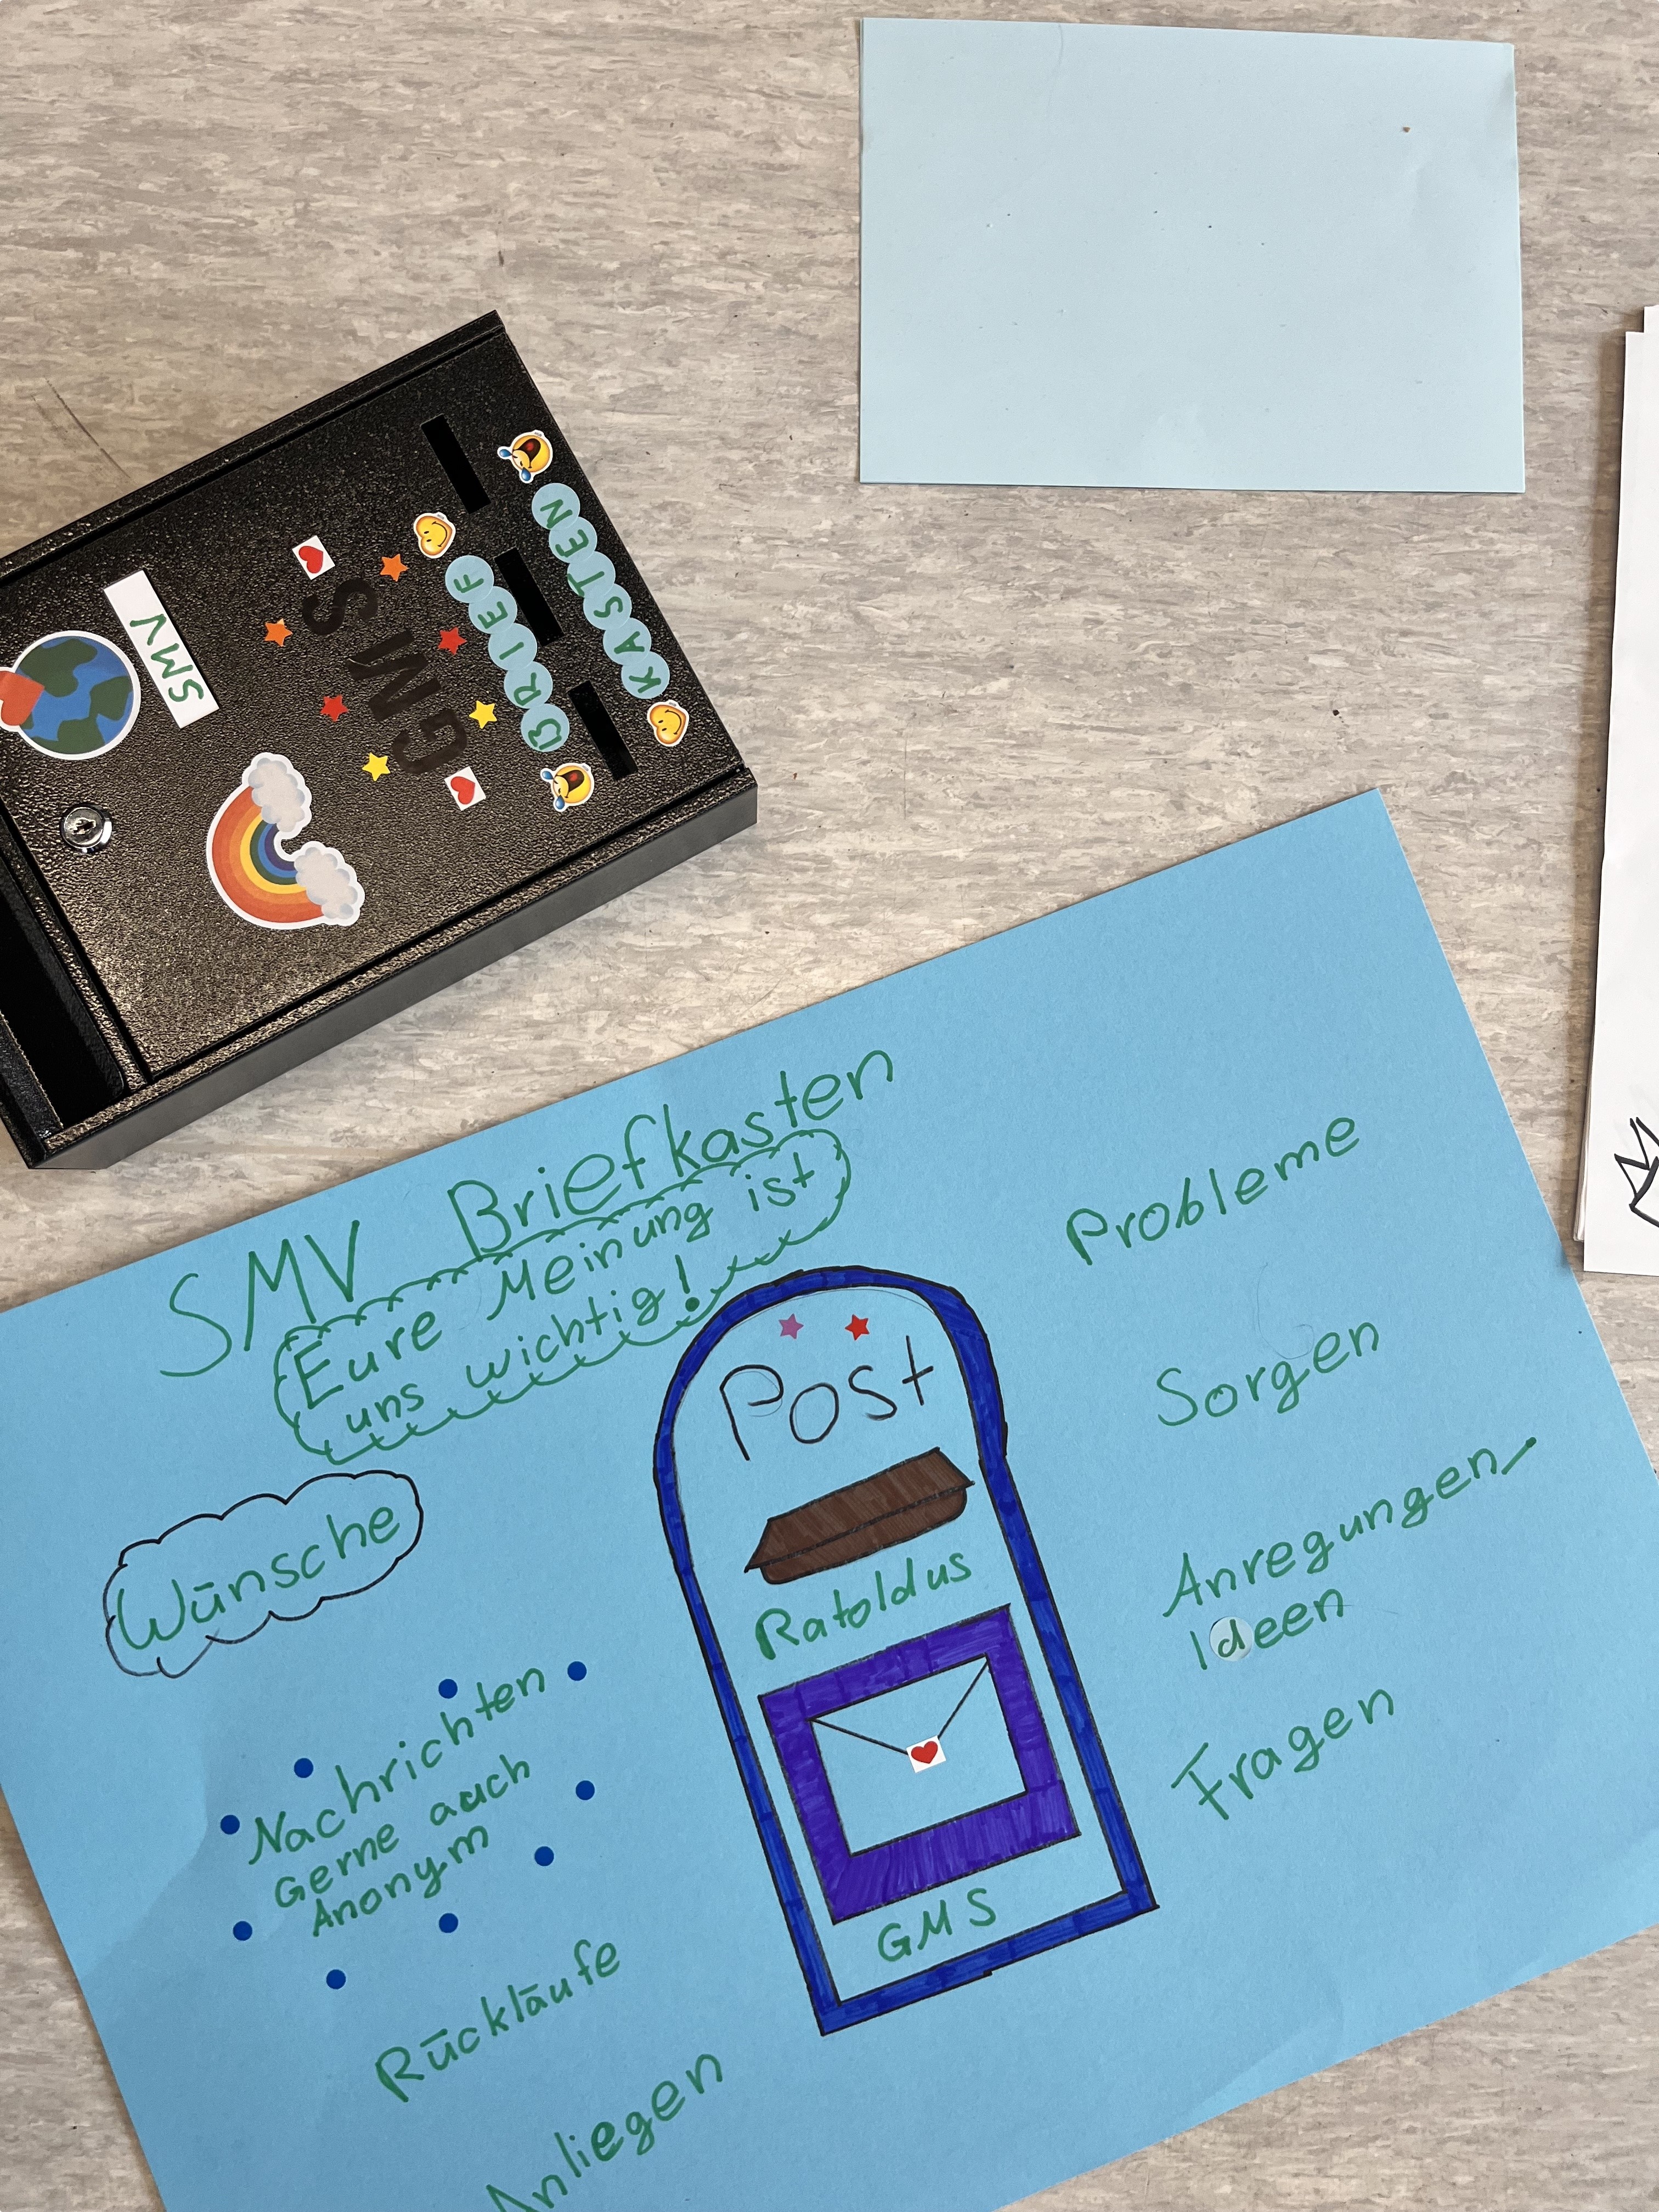 BRIEF
KASTEN
GMS
SMV
SMV Briefkasten
Eure Meinung ist
uns wichtig!
Wünsche
Nachrichten
Gerne auch
Anonym
Rückläufe
Anliegen
Post
Ratoldus
GMS
Probleme
Sorgen
Anregungen
Ideen
Fragen